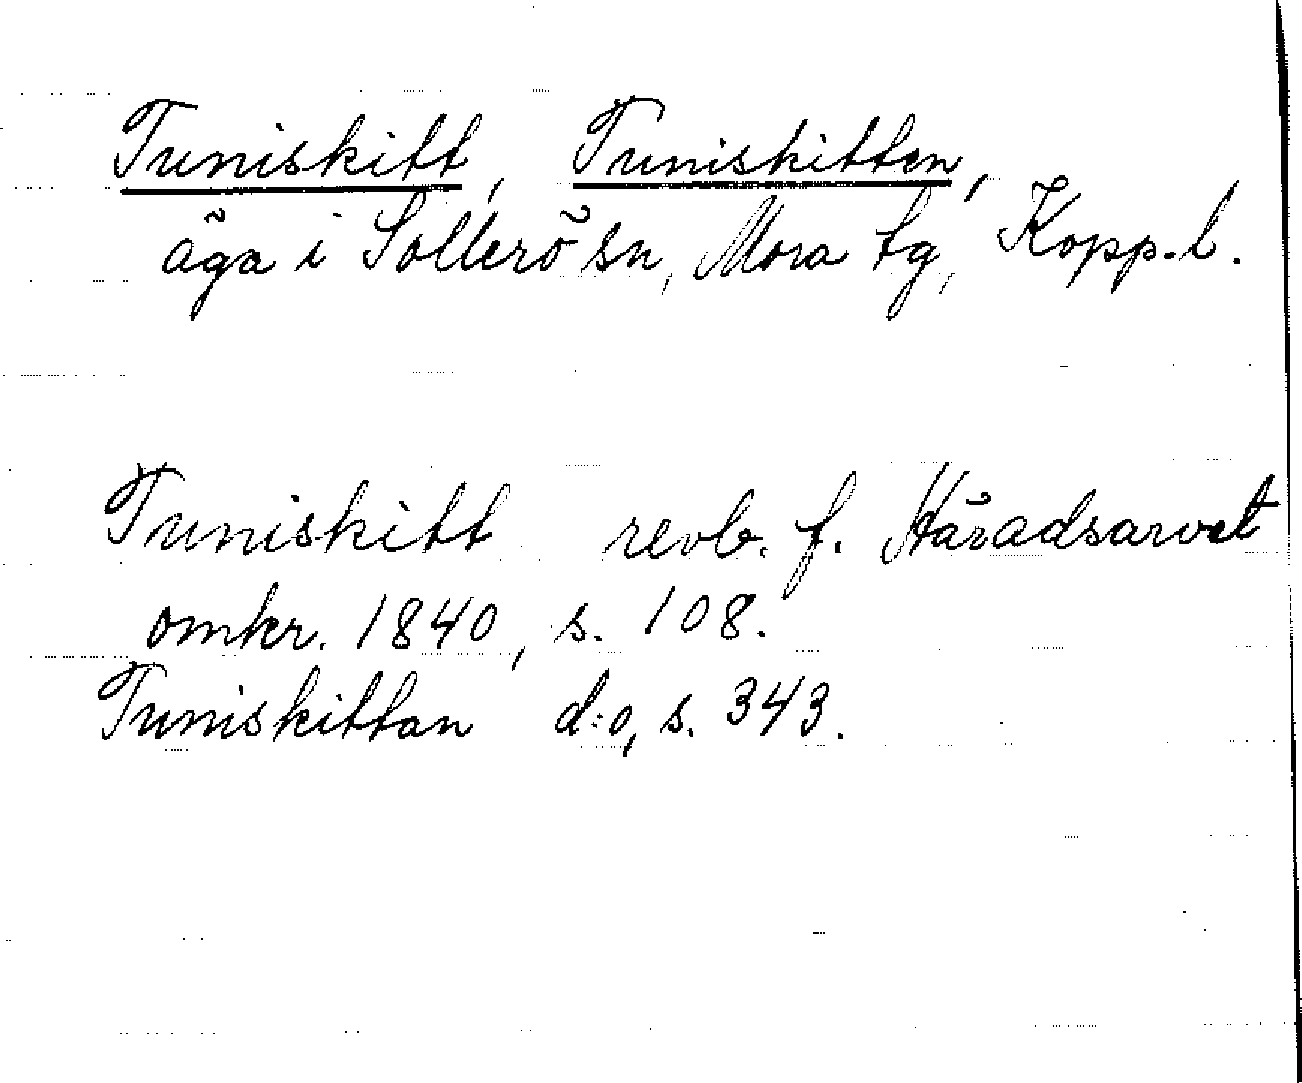 Tuniskitt, Tuniskitten,
äga i Sollerö sn, Mora tg, Kopp. l.
Tuniskitt revb. f. Häradsarvet
omkr. 1840, s. 108.
Tuniskittan d:o, s. 343.